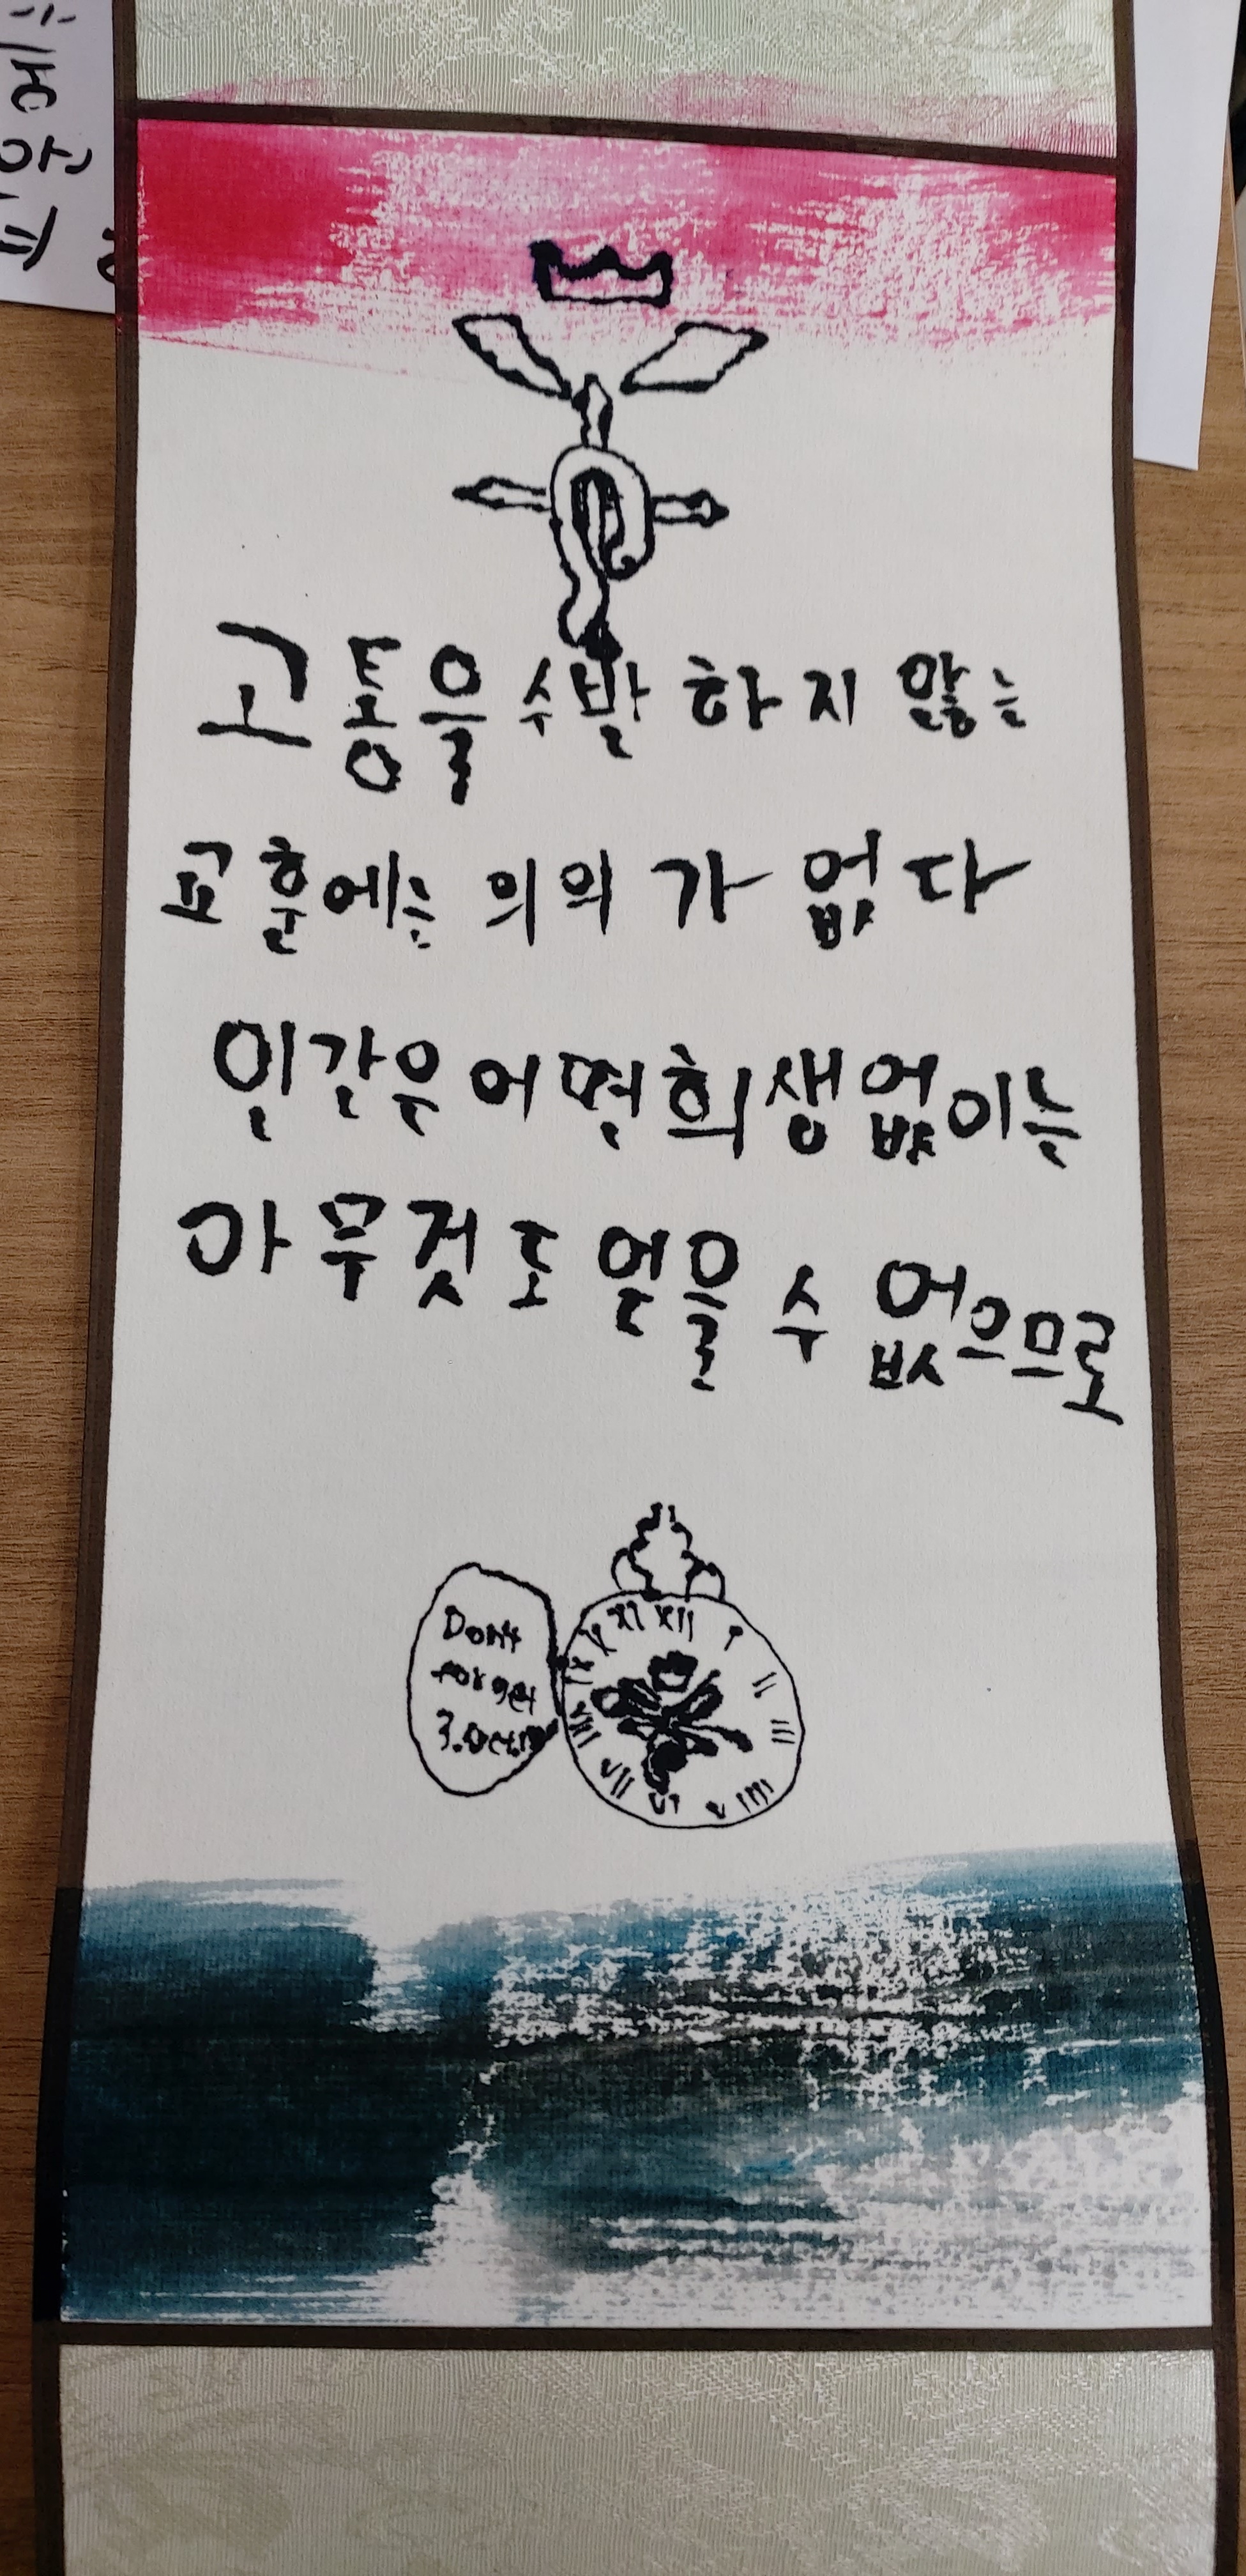 고통을 수반하지 않는
교훈에는 의의가 없다
인간은 어떤 희생 없이는
아무것도 얻을 수 없으므로
Don't
forget
3.Oct
XI XII I II III IIII V VI VII VIII